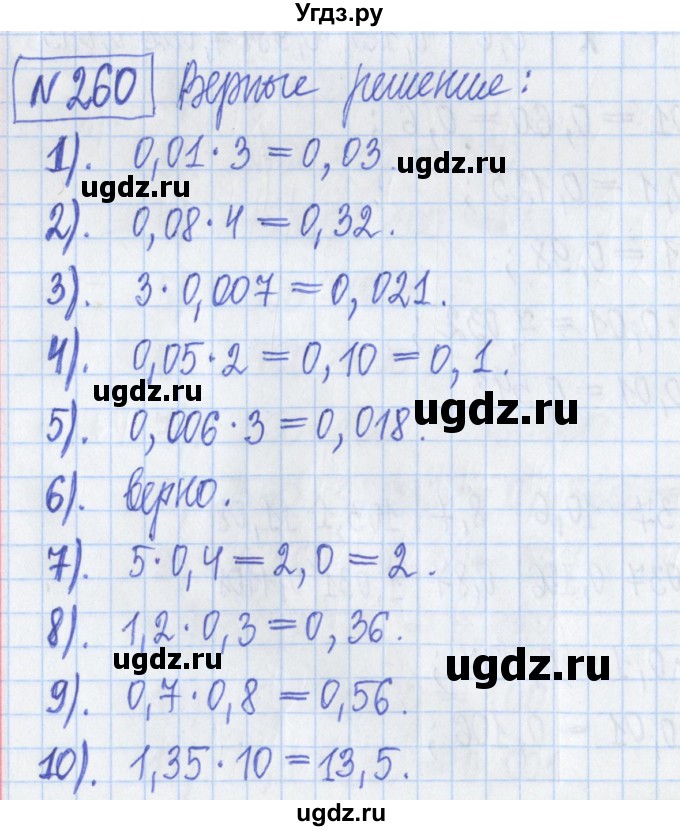 Угдз.ру
№260 Верные решение:
1). 0,01·3=0,03
ugdz.ru
2). 0,08·4=0,32.
3). 3·0,007=0,021.
4). 0,05·2=0,10=0,1.
ugdz.ru
ugdz.ru
5). 0,006·3=0,018.
6). верно.
7). 5·0,4=2,0=2.
8). 1,2·0,3=0,36.
ugdz.ru
ugdz.ru
9). 0,7·0,8=0,56.
10). 1,35·10=13,5.
ugdz.ru